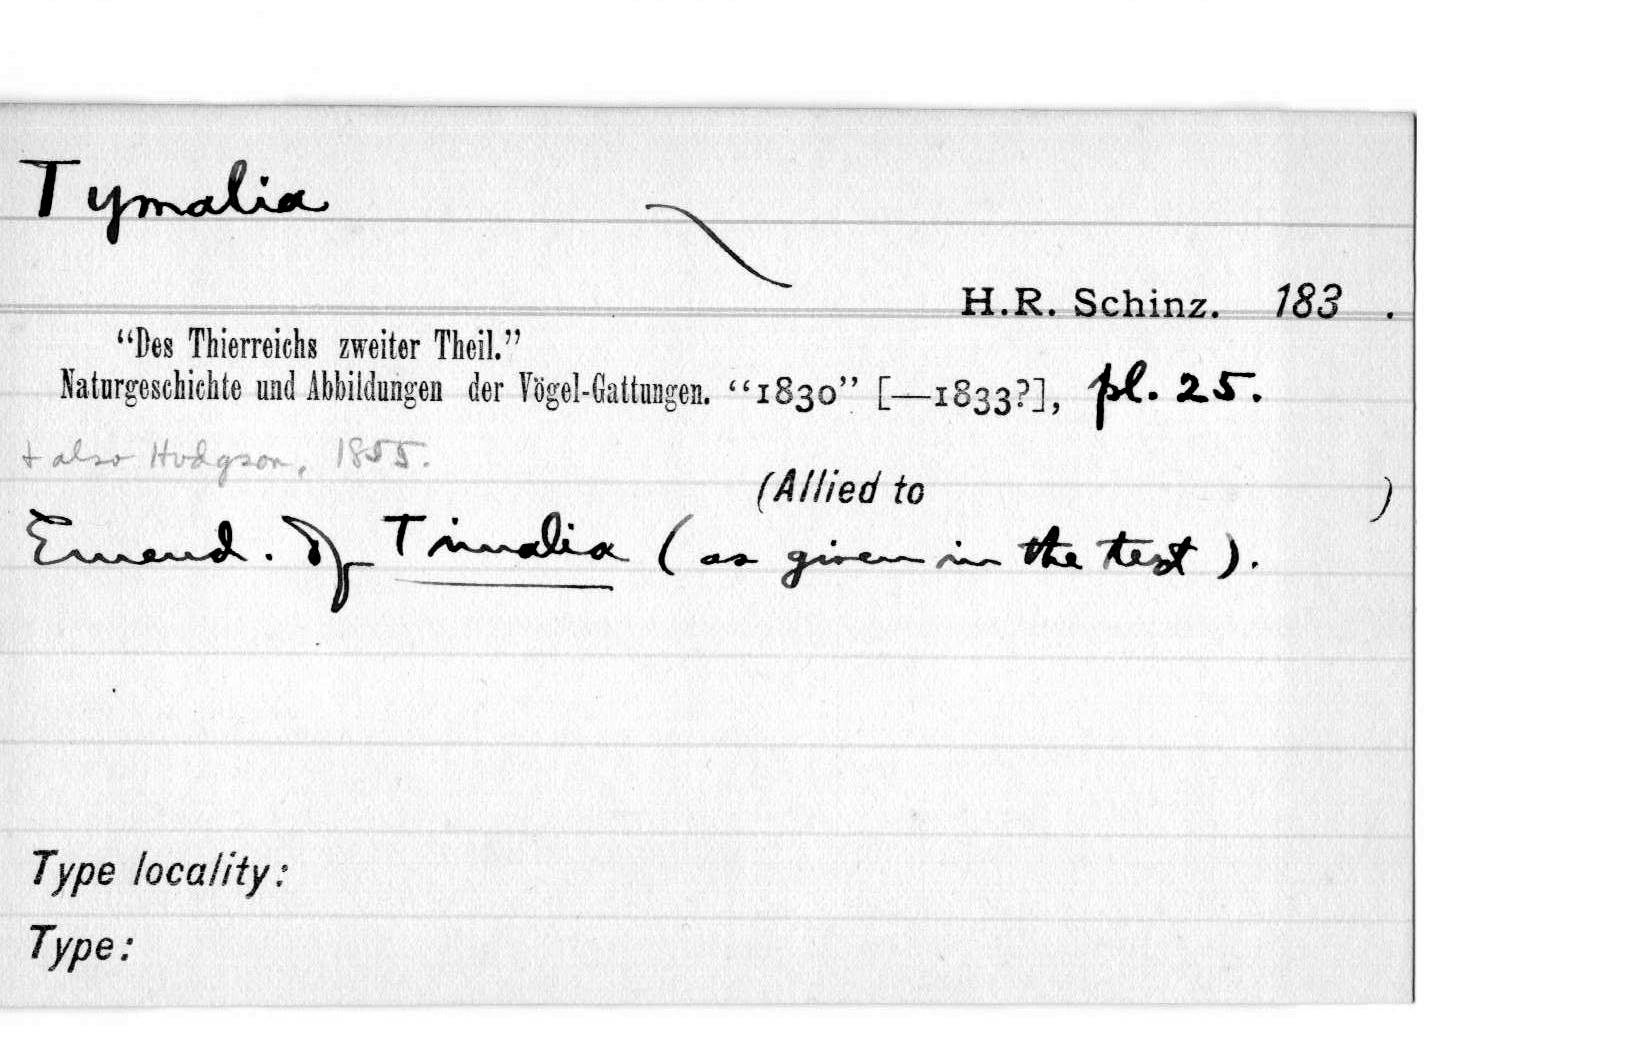 Tymalia
H.R. Schinz. 183 .
“Des Thierreichs zweiter Theil.”
Naturgeschichte und Abbildungen der Vögel-Gattungen. “1830” [—1833?], pl. 25.
+ also Hodgson, 1855.
(Allied to )
Emend. of Timalia (as given in the text).
Type locality:
Type: